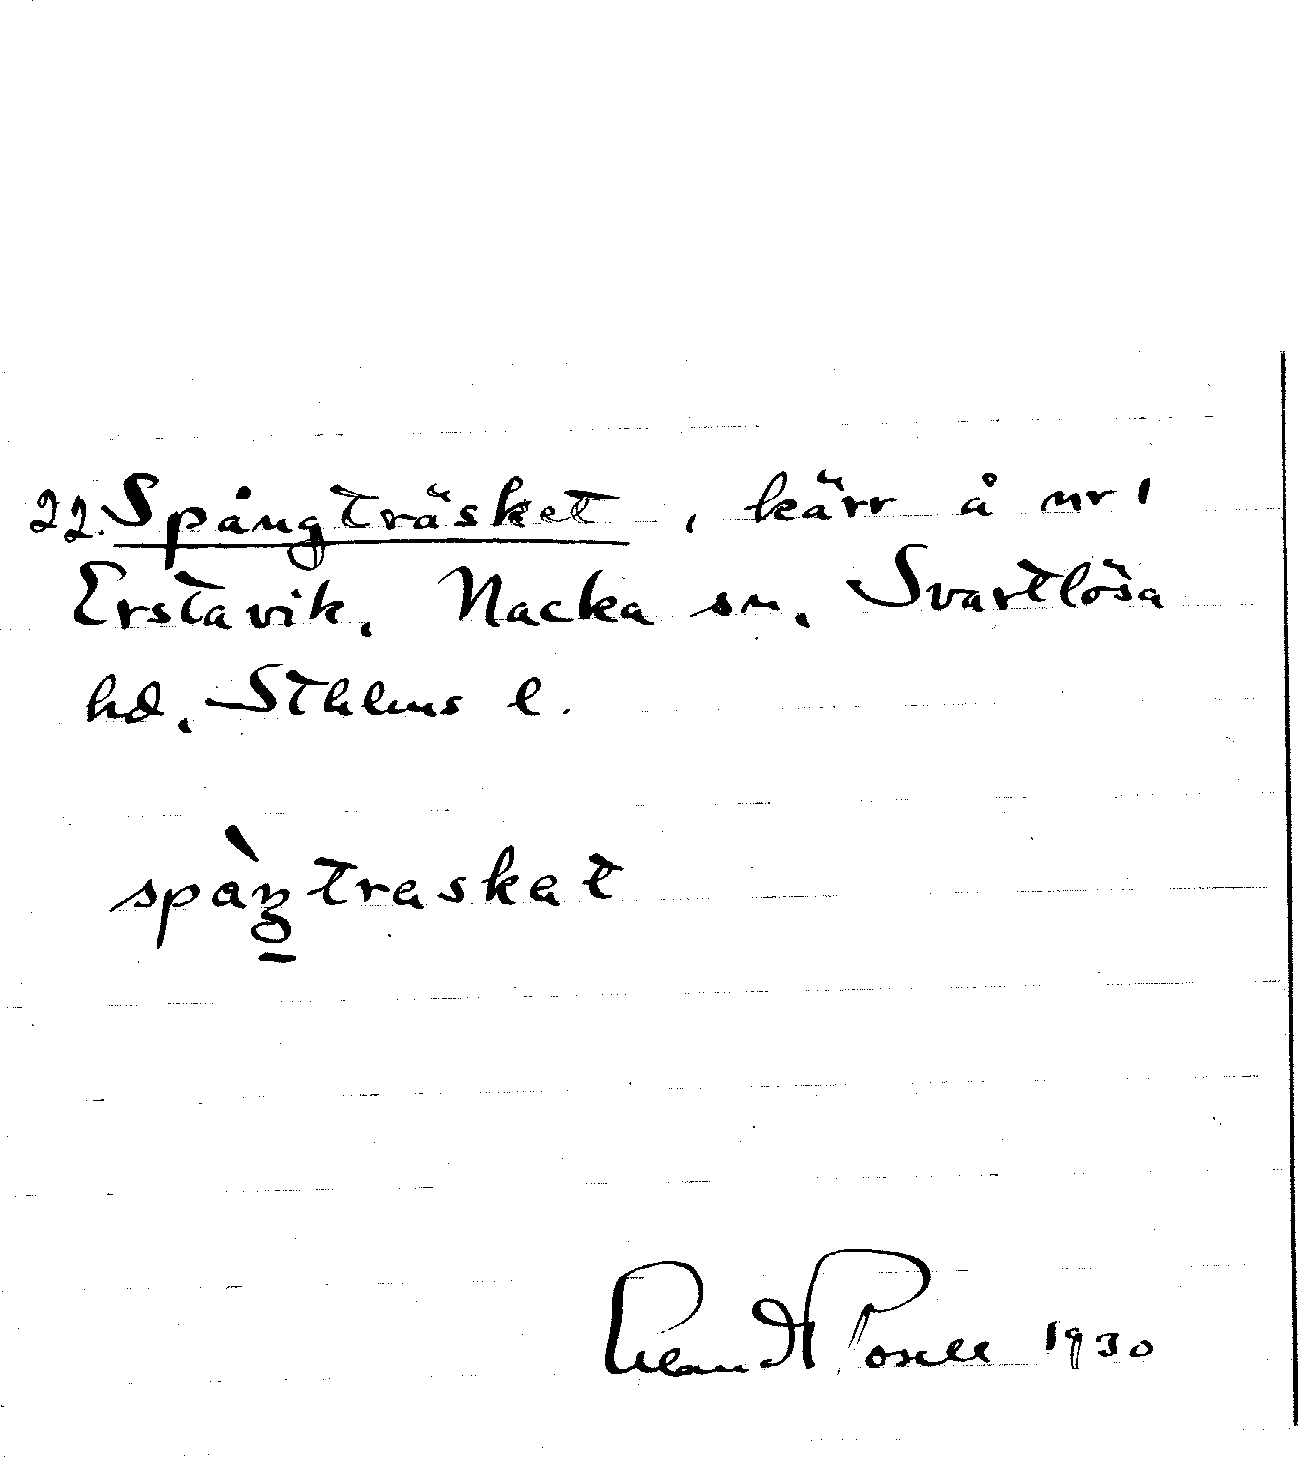 22. Spångträsket, kärr å nr 1
Erstavik. Nacka sn. Svartlösa
hd. Sthlms l.
spàŋtraskat
Erland Rosell 1930